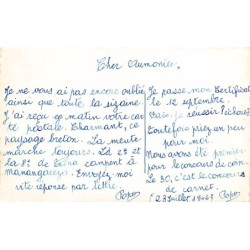 Cher Aumonier.
Je ne vous ai pas encore oublié
ainsi que toute la sizaine
J'ai reçu ce matin votre car
te postale. Charmant, ce
paysage breton. La meute
marche toujours. La 2e et
la 8e de campent à
Envoyez-moi
vite réponse par lettre.
Je passe mon Certificat
le 12 septembre.
réussir
Toutefois priez un peu
pour moi.
Nous avons été premier
pour le concours de
Le 30, c'est le concours
de carnet.
23 Juillet